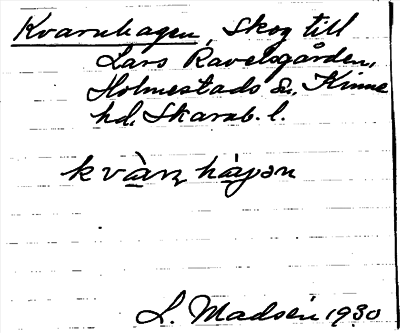 Kvarnhagen, skog till
Lars Ravelsgården,
Holmestads sn, Kinne
hd, Skarab. l.
kvàṇhàgən
L. Madsén 1930